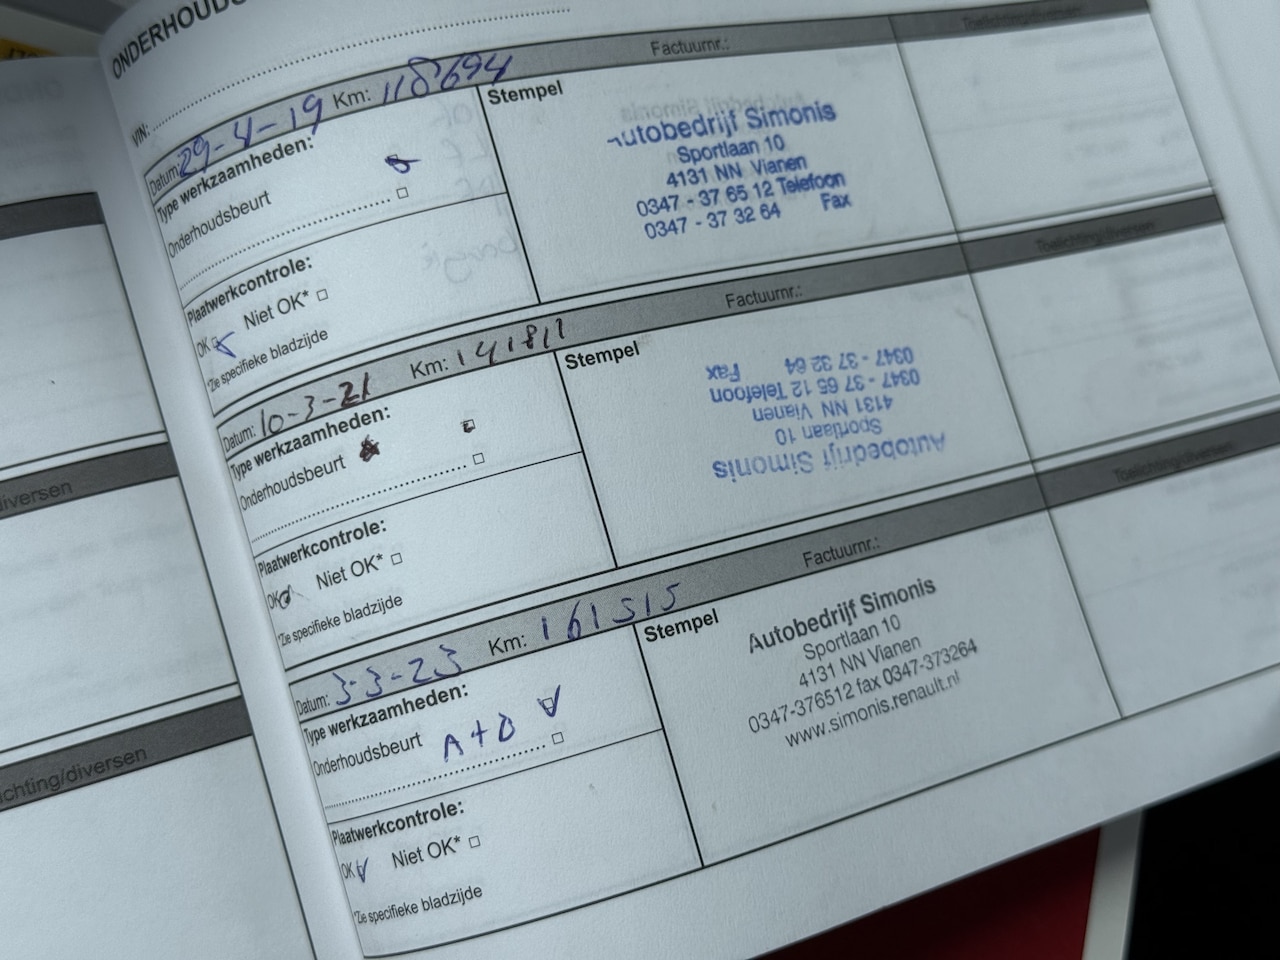 ONDERHOUDS
VIN:
Datum: 29-4-19 Km: 118694 Factuurnr.: Toelichting/diversen
Type werkzaamheden:
Onderhoudsbeurt
Plaatwerkcontrole:
OK Niet OK*
*Zie specifieke bladzijde
Stempel
Autobedrijf Simonis
Sportlaan 10
4131 NN Vianen
0347 - 37 65 12 Telefoon
0347 - 37 32 64 Fax
Datum: 10-3-21 Km: 141811 Factuurnr.: Toelichting/diversen
Type werkzaamheden:
Onderhoudsbeurt
Plaatwerkcontrole:
OK Niet OK*
*Zie specifieke bladzijde
Stempel
Autobedrijf Simonis
Sportlaan 10
4131 NN Vianen
0347 - 37 65 12 Telefoon
0347 - 37 32 64 Fax
Datum: 3-3-23 Km: 161515 Factuurnr.: Toelichting/diversen
Type werkzaamheden:
Onderhoudsbeurt A+D
Plaatwerkcontrole:
OK Niet OK*
*Zie specifieke bladzijde
Stempel
Autobedrijf Simonis
Sportlaan 10
4131 NN Vianen
0347-376512 fax 0347-373264
www.simonis.renault.nl
diversen
chting/diversen